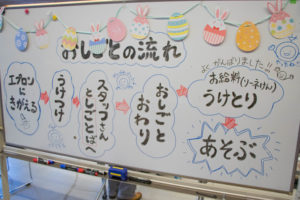 おしごとの流れ
エプロンに
きがえる
うけつけ
スタッフさん
としごとばへ
おしごと
おわり
よくがんばりました!!
お給料(リーネけん)
うけとり
あそぶ